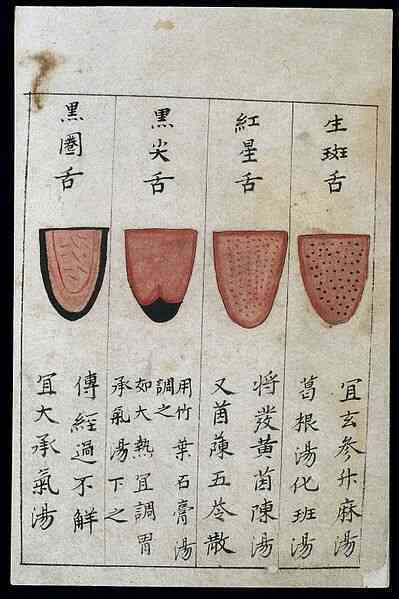 生斑舌
宜玄参升麻湯
葛根湯化班湯
紅星舌
將發黃茵陳湯
又茵蔯五苓散
黑尖舌
用竹葉石膏湯
調之
如大熱宜調胃
承氣湯下之
黑圈舌
傳經過不解
宜大承氣湯